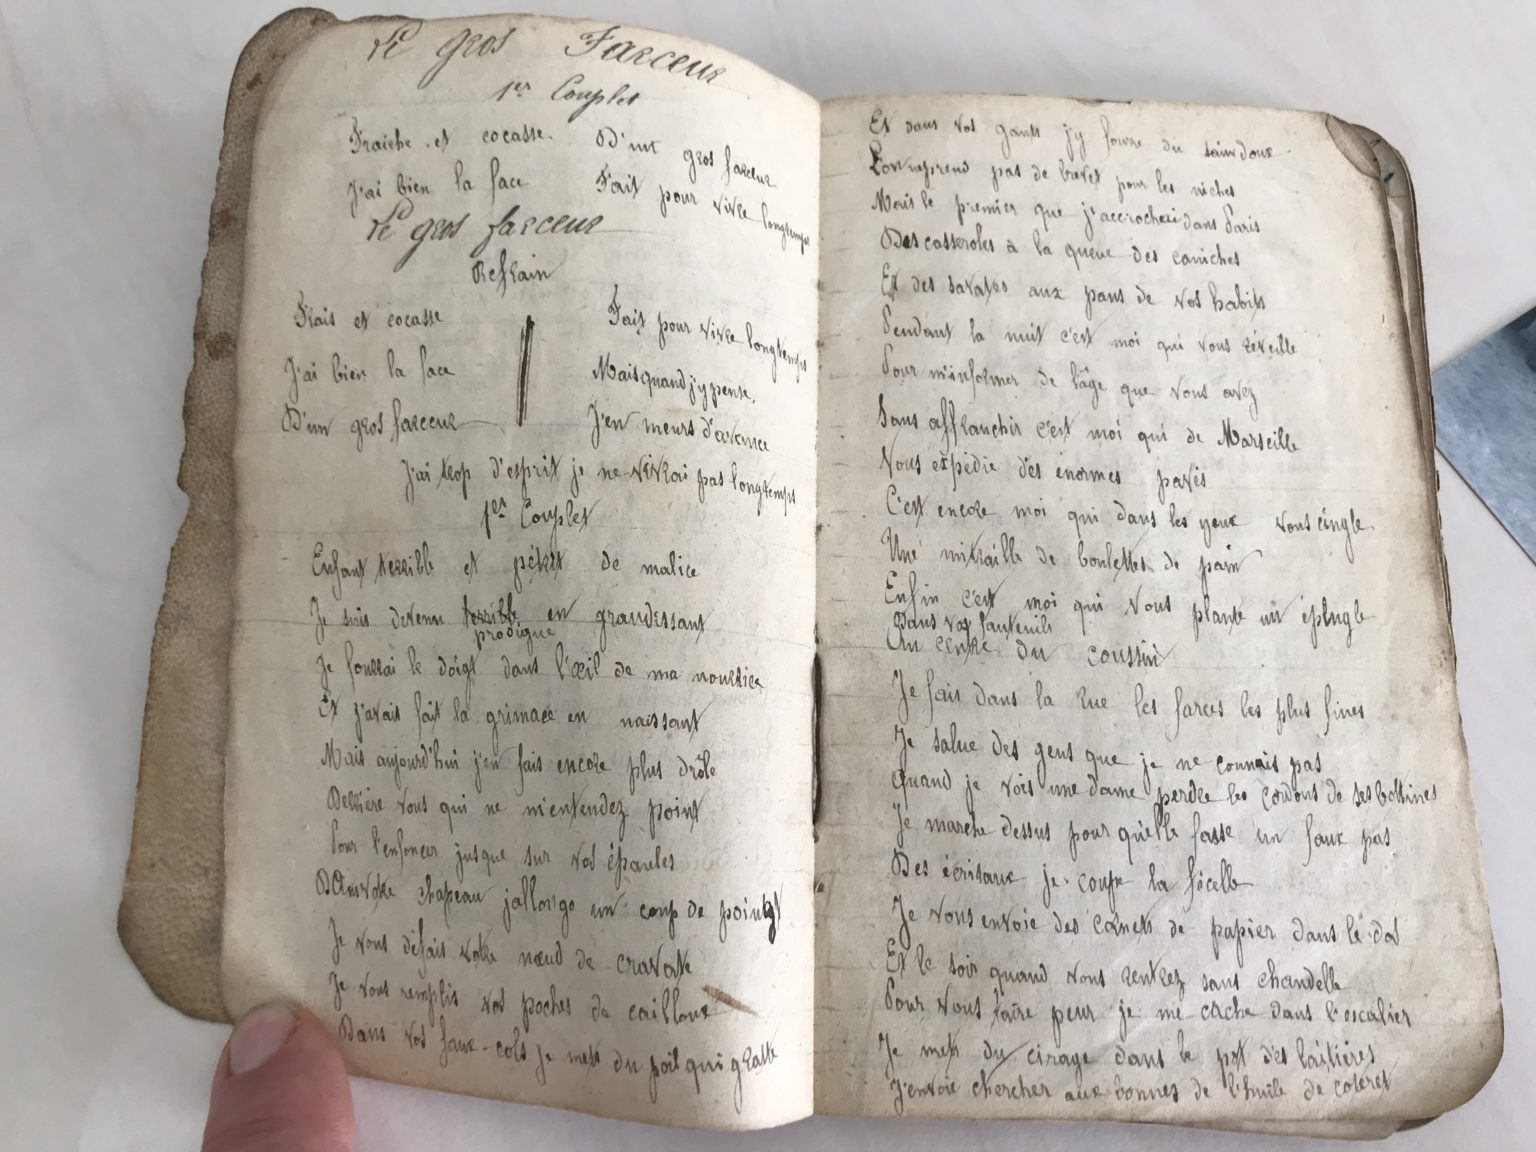 Le gros Farceur
1er Couplet
Fraiche et cocasse D'un gros farceur
J'ai bien la face Fait pour vivre longtemps
Le gros farceur
Refrain
Frais et cocasse
J'ai bien la face
D'un gros farceur
Fait pour vivre longtemps
Mais quand j'y pense,
J'en meurs d'avance
J'ai trop d'esprit je ne vivrai pas longtemps
1er Couplet
Enfant terrible et pétrit de malice
Je suis devenu terrible en grandissant
prodigue
Je fourrai le doigt dans l'œil de ma nourrice
Et j'avais fait la grimace en naissant
Mais aujourd'hui j'en fais encore plus drôle
Derrière vous qui ne m'entendez point
Pour l'enfoncer jusque sur vos épaules
Dans votre chapeau jallonge un coup de point
Je vous défais votre nœud de cravate
Je vous remplis vos poches de cailloux
Dans vos faux-cols je mets du poil qui gratte
Et dans vos gants j'y fourre du saindoux
L'on neprend pas de brevet pour les niches
Mais le premier que j'accrochai dans Paris
Des casseroles à la queue des caniches
Et des savates aux pans de vos habits
Pendant la nuit c'est moi qui vous réveille
Pour m'informer de l'âge que vous avez
Sans affranchir c'est moi qui de Marseille
Vous expédie des énormes pavés
C'est encore moi qui dans les yeux vous cingle
Une mitraille de boulettes de pain
Enfin c'est moi qui vous plante un épingle
Dans vos fauteuils
Au centre du coussin
Je fais dans la rue les farces les plus fines
Je salue des gens que je ne connais pas
Quand je vois une dame perdre les cordons de ses bottines
Je marche dessus pour qu'elle fasse un faux pas
Des écritaux je coupe la ficelle
Je vous envoie des cornets de papier dans le dos
Et le soir quand vous rentrez sans chandelle
Pour vous faire peur je me cache dans l'escalier
Je mets du cirage dans le pot des laitières
J'envoie chercher aux bonnes de l'huile de coteret